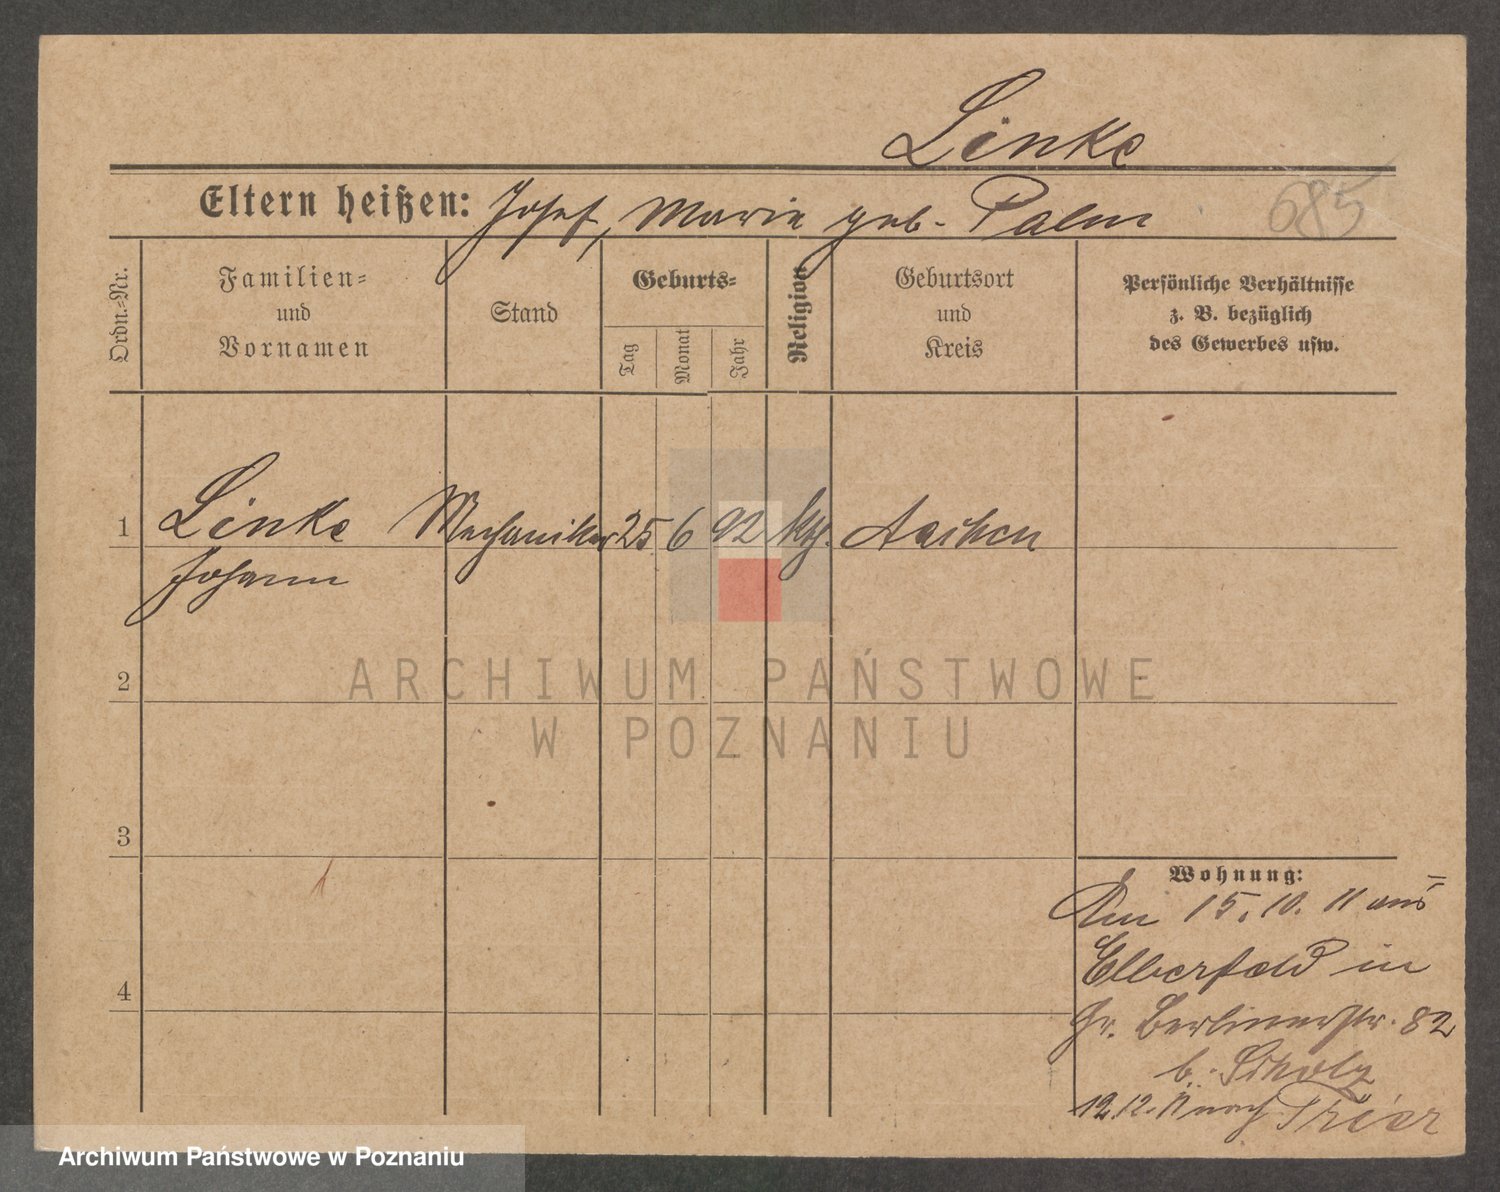 Linke
Eltern heißen: Josef, Marie geb. Palm
685
Ordn.-Nr.
Familien-
und
Vornamen
Stand
Geburts-
Tag
Monat
Jahr
Religion
Geburtsort
und
Kreis
Persönliche Verhältnisse
z. B. bezüglich
des Gewerbes usw.
1
Linke Mechaniker 25 6 92 kth. Aachen
Johann
2
ARCHIWUM PAŃSTWOWE
W POZNANIU
3
Wohnung:
Am 15. 10. 11 aus
Elberfeld in
Gr. Berlinerstr. 82
b. Scholz
4
12 12. 11 nach Trier
Archiwum Państwowe w Poznaniu